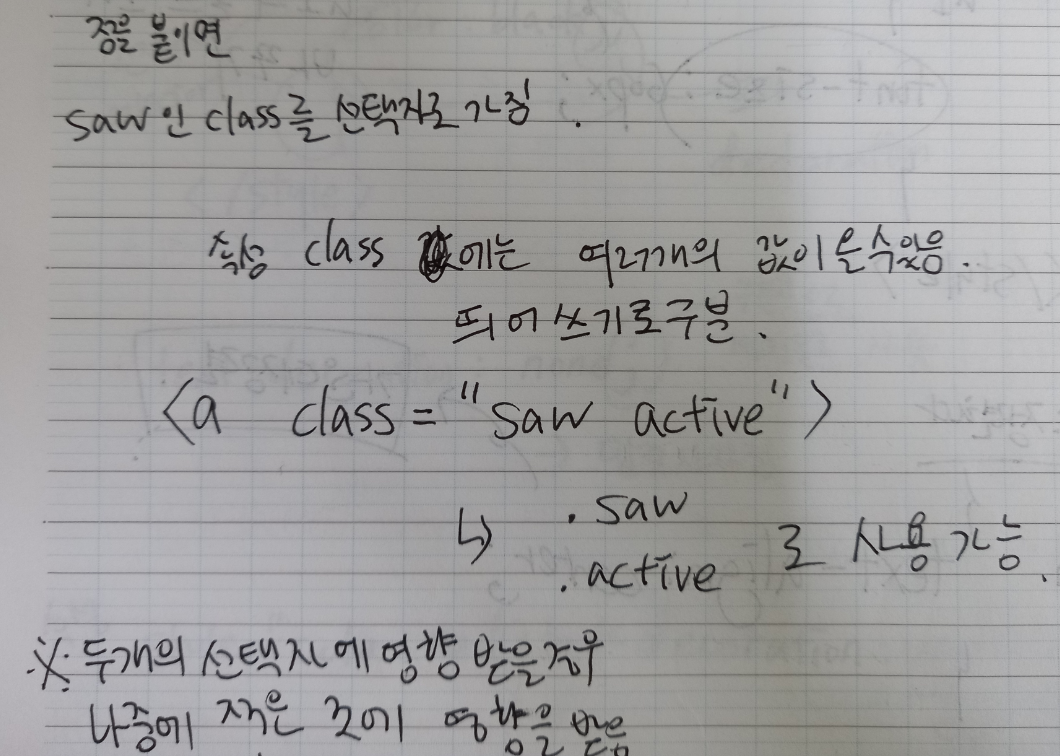 점을 붙이면
saw인 class를 선택자로 가짐.
속성 class 에는 여러개의 값이 올 수 있음.
띄어쓰기로 구분.
<a class="saw active">
↳ .saw
.active 로 사용 가능.
※ 두개의 선택자에 영향 받을 경우
나중에 적은 코에 영향을 받음